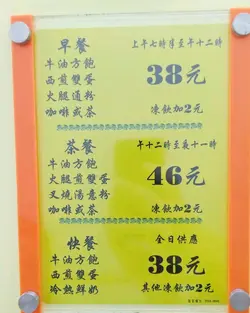 早餐
上午七時半至午十二時
牛油方飽
西煎雙蛋
火腿通粉
咖啡或茶
38元
凍飲加2元
茶餐
午十二時至夜十一時
牛油方飽
西煎雙蛋
叉燒湯意粉
咖啡或茶
46元
凍飲加2元
快餐
全日供應
牛油方飽
西煎雙蛋
冷熱鮮奶
38元
其他凍飲加2元